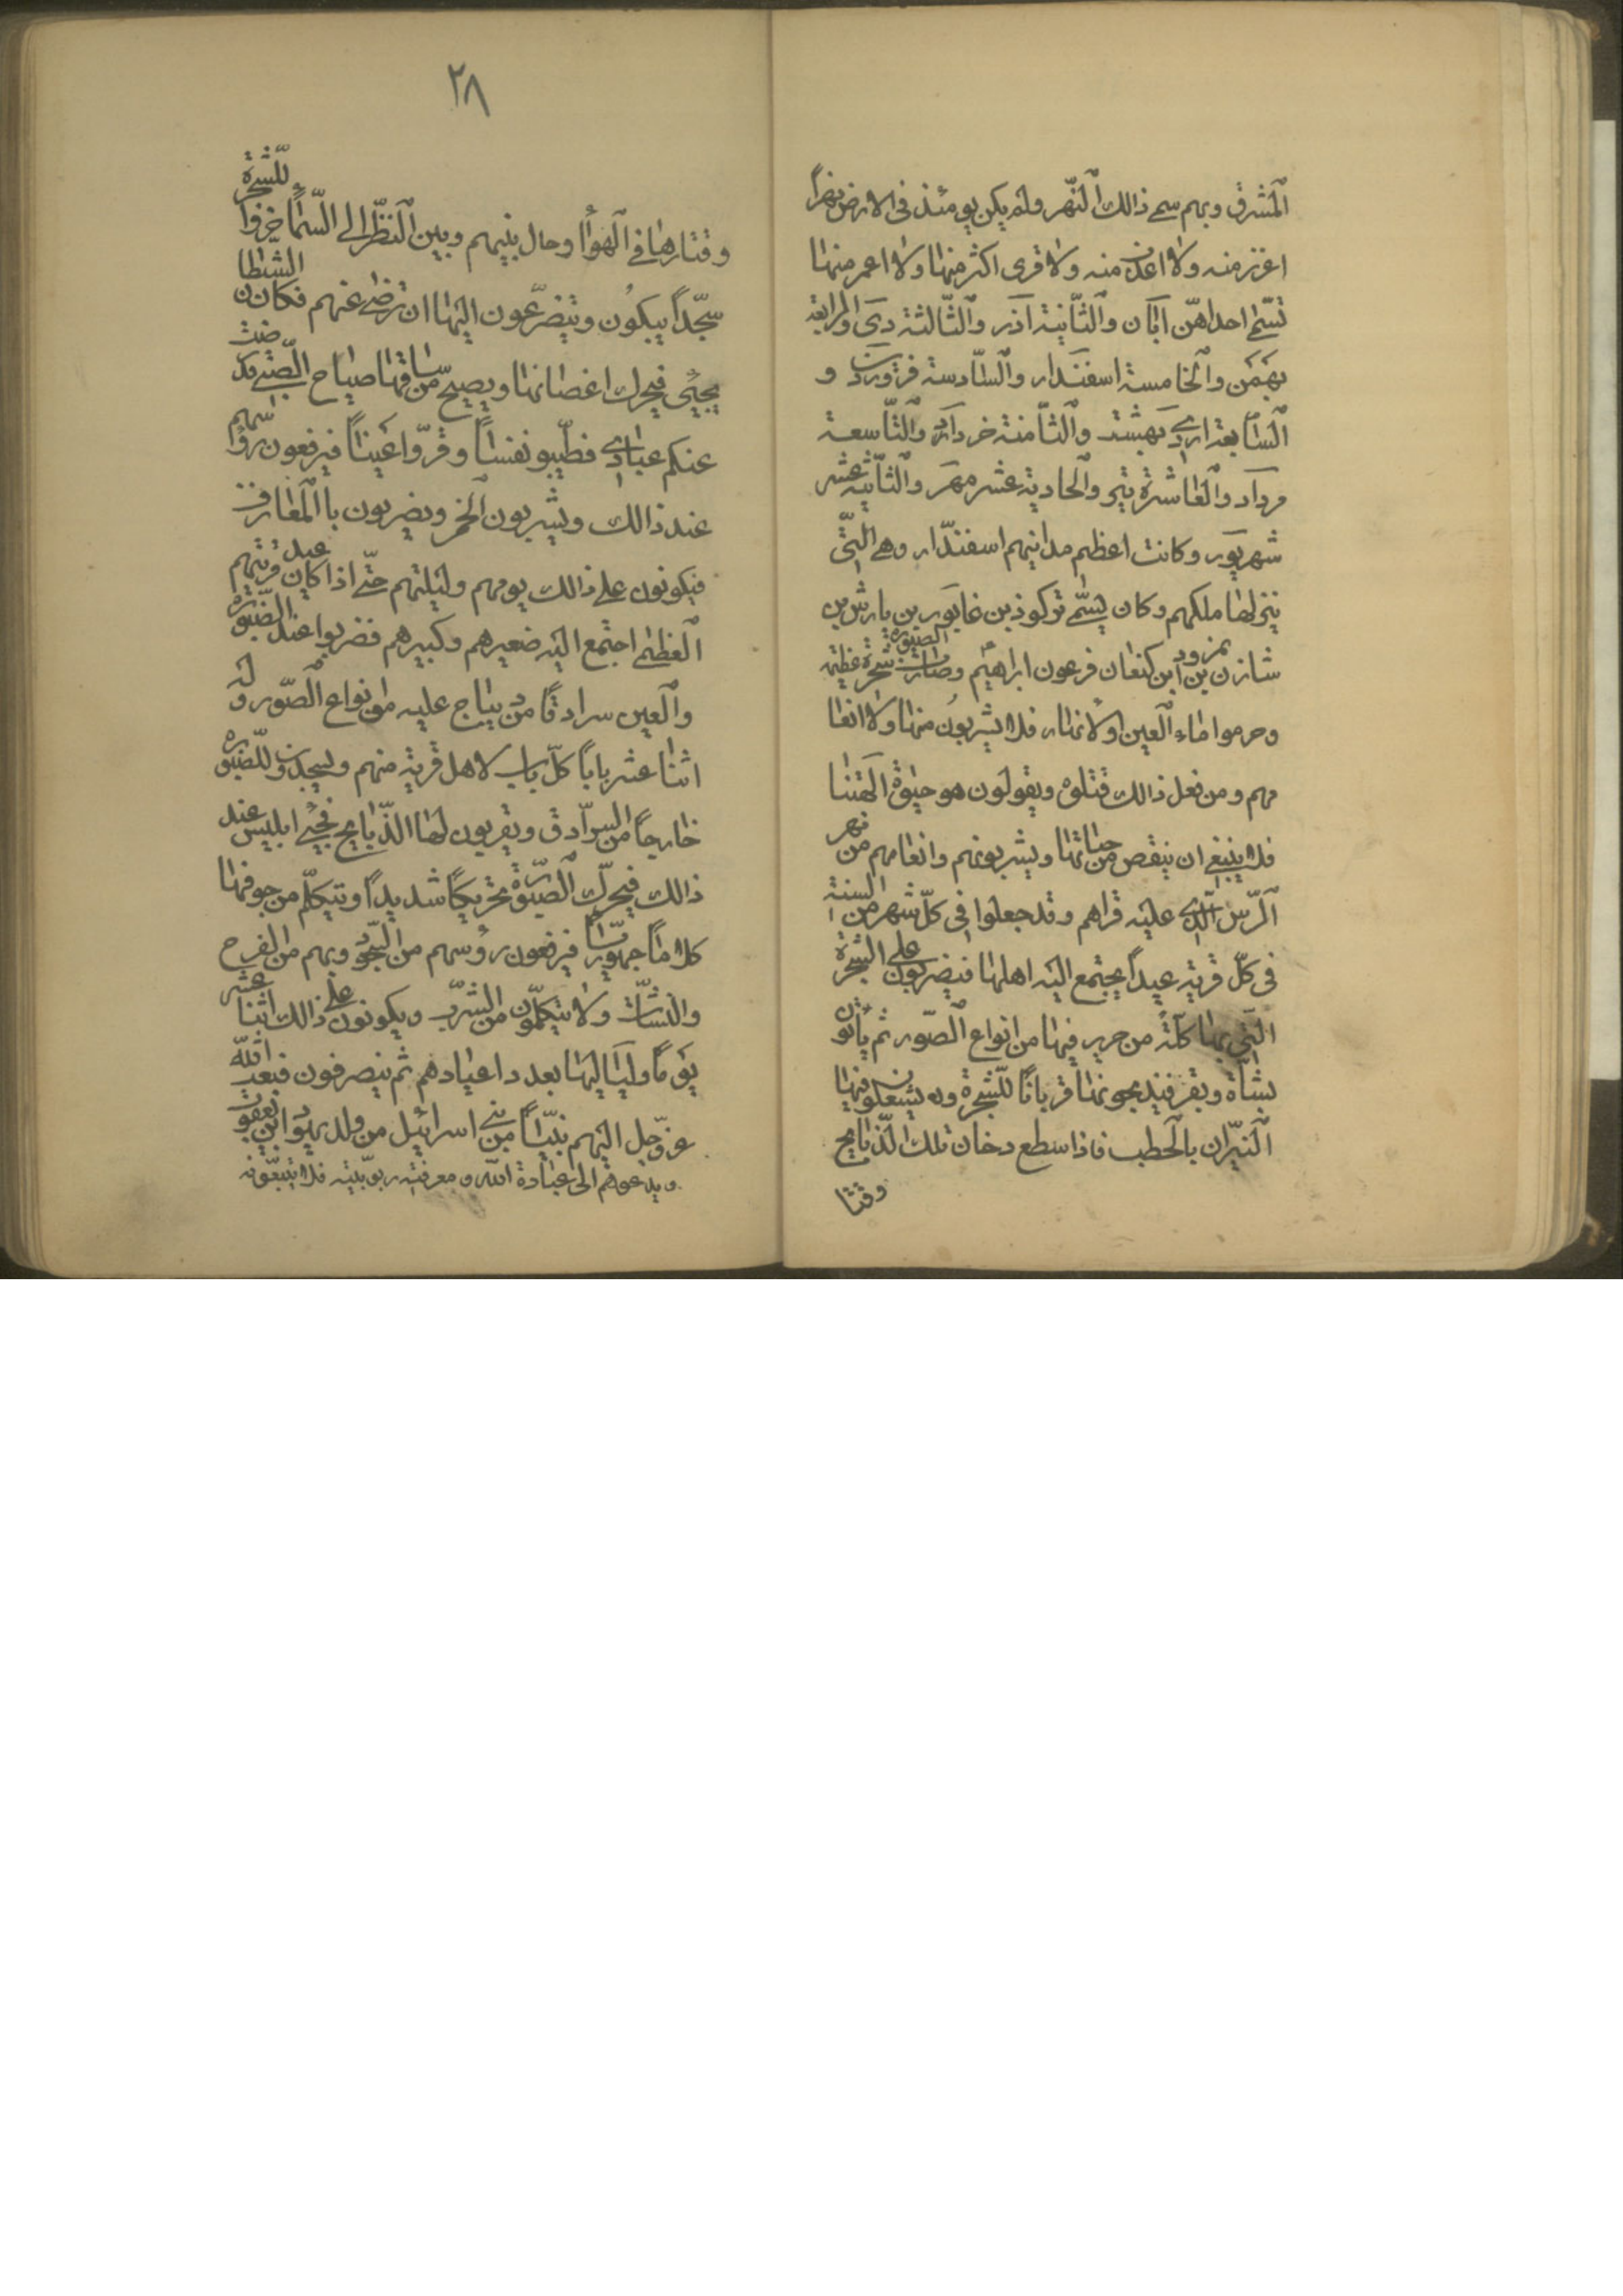 المشرق وبهم سمے ذالك النّهر ولم يكن يومئذ فی الارض نهراً
اغزر منه ولا اعذب منه ولا قری اكثر منها ولا اعمر منها
تسمّے احداهنّ آبان والثّانية آذر والثّالثة دَی والرابعة
بهمن والخامسة اسفندار والسّادسة فروردین و
السّابعة اردے بهشت والثّامنة خرداد والتّاسعة
مرداد والعاشرة تير والحادية عشر مهر والثّانية عشر
شهريور وكانت اعظم مداينهم اسفندّار وهے الّتی
ينزلها ملكهم وكان يسمّے تركوذ بن غابور بن يارش بن
شازن بن نمرود ابن كنعان فرعون ابراهيم ع وصارت الصّنوبرة شجرة عظيمة
وحرموا ماء العين والانهار فلا يشربون منها ولا انعا
مهم ومن فعل ذالك قتلوه ويقولون هو حيٰوة آلهتنا
فلا ينبغے ان ينقص من حياتها ويشربونهم وانعامهم من نهر
الرّس الّذے عليه قراهم وقد جعلوا فی كلّ شهر من السنة
فی كلّ قرية عيداً يجتمع اليه اهلها فيضربون علی الشجرة
الّتی بها كلّة من حرير فيها من انواع الصّور ثم يأتون
بشاة وبقر فيذبحونها قرباناً للشّجرة ويشعلون فيها
النّيران بالحطب فاذا سطع دخان تلك الذّبايح
وقتا
٢٨
وقتارها فی الهوأ وحال بينهم وبين النّظر الی السّماء خرّوا للشّجرة
سجّداً يبكون ويتضرّعون اليها ان ترضے عنهم فكان الشيطان
يجیٔ فيحرك اغصانها ويصيح من ساقها صياح الصّبے قد رضيت
عنكم عبادے فطيبو نفساً وقرّوا عيناً فيرفعون رؤسهم
عند ذالك ويشربون الخمر ويضربون باالمعازف
فيكونون علے ذالك يومهم وليلتهم حتّے اذا كان عيد قريتهم
العظمے اجتمع اليه صغيرهم وكبيرهم فضربوا عند الصّنوبرة
والعين سرادقاً من ديباج عليه من انواع الصّور و له
اثنا عشر باباً كلّ باب لاهل قرية منهم ويسجدون للصّنوبرة
خارجاً من السرّادق ويقربون لها الذّبايح فيجیٔ ابليس عند
ذالك فيحرّك الصّنوبرة تحريكاً شديداً ويتكلّم من جوفها
كلاماً جهوريّاً فيرفعون رؤسهم من السّجود وبهم من الفرح
والنّشاط ولا يتكلّمون من الشّرب ويكونون علی ذالك اثنا عشر
يوماً ولياليها بعدد اعيادهم ثم ينصرفون فبعث الله
عزّ وجل اليهم نبيّاً من بنے اسرائيل من ولد يهودا بن يعقوب
ويدعوهم الی عبادة الله ومعرفة ربوبيّته فلا يتبعونه